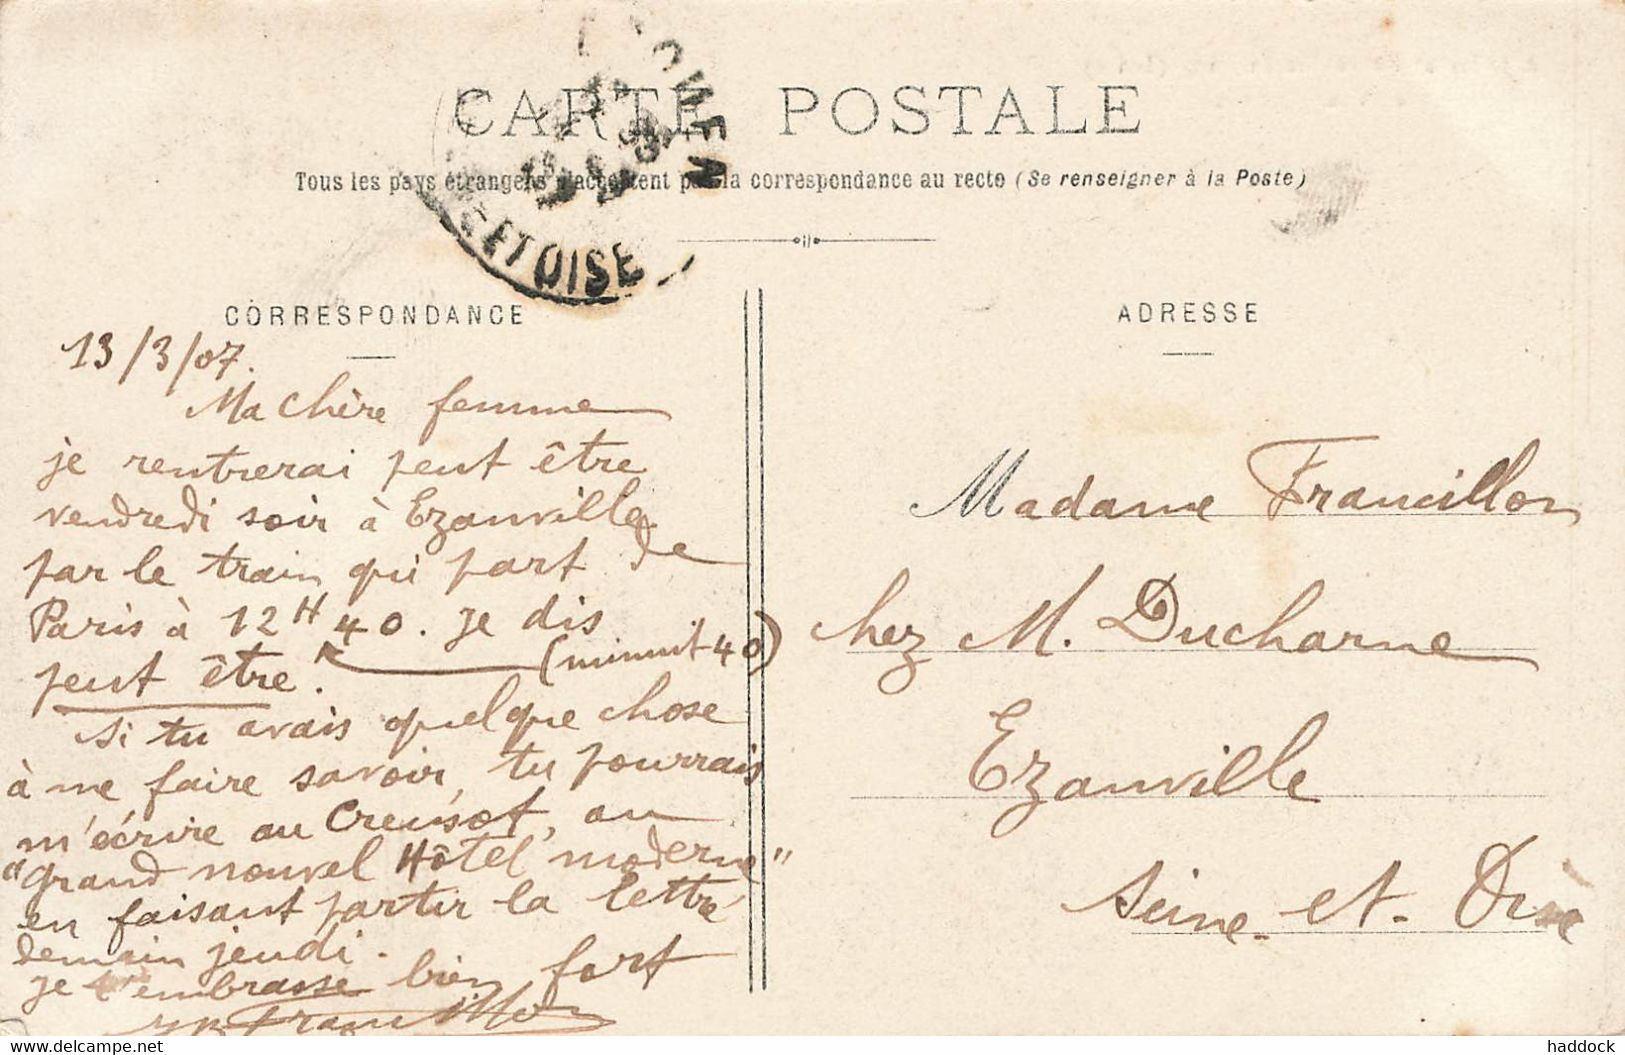 CARTE POSTALE
Tous les pays étrangers n'acceptent pas la correspondance au recto (Se renseigner à la Poste)
ET OISE
CORRESPONDANCE
13/3/07.
Ma chère femme
je rentrerai peut être
vendredi soir à Ezanville
par le train qui part de
Paris à 12H40. Je dis
(minuit 40)
peut être.
Si tu avais quelque chose
à me faire savoir, tu pourrais
m'écrire au Creusot, au
"grand nouvel Hôtel moderne"
en faisant partir la lettre
demain jeudi.
Je t'embrasse bien fort
Francillon
ADRESSE
Madame Francillon
chez M. Ducharne
Ezanville
Seine-et-Oise
www.delcampe.net
haddock